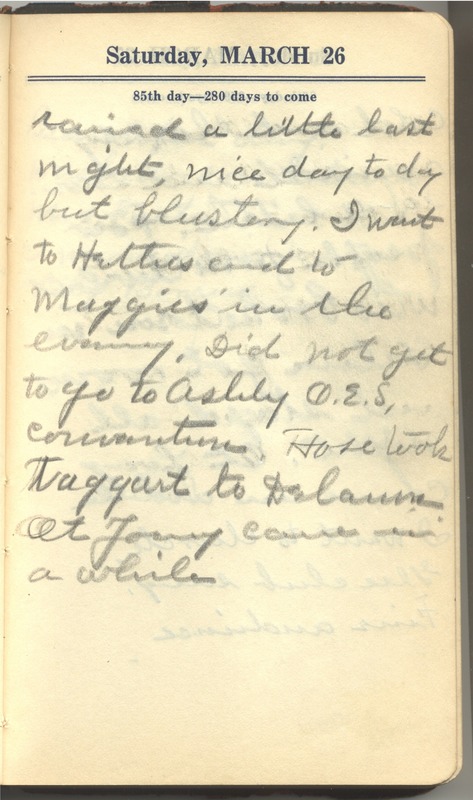 Saturday, MARCH 26
85th day—280 days to come
rained a little last
night, nice day to day
but blustery. I went
to Hatties and to
Maggies in the
evening. Did not get
to go to Ashly O.E.S,
convantion. Hose took
Taggart to Delawn
At Jony came in
a while